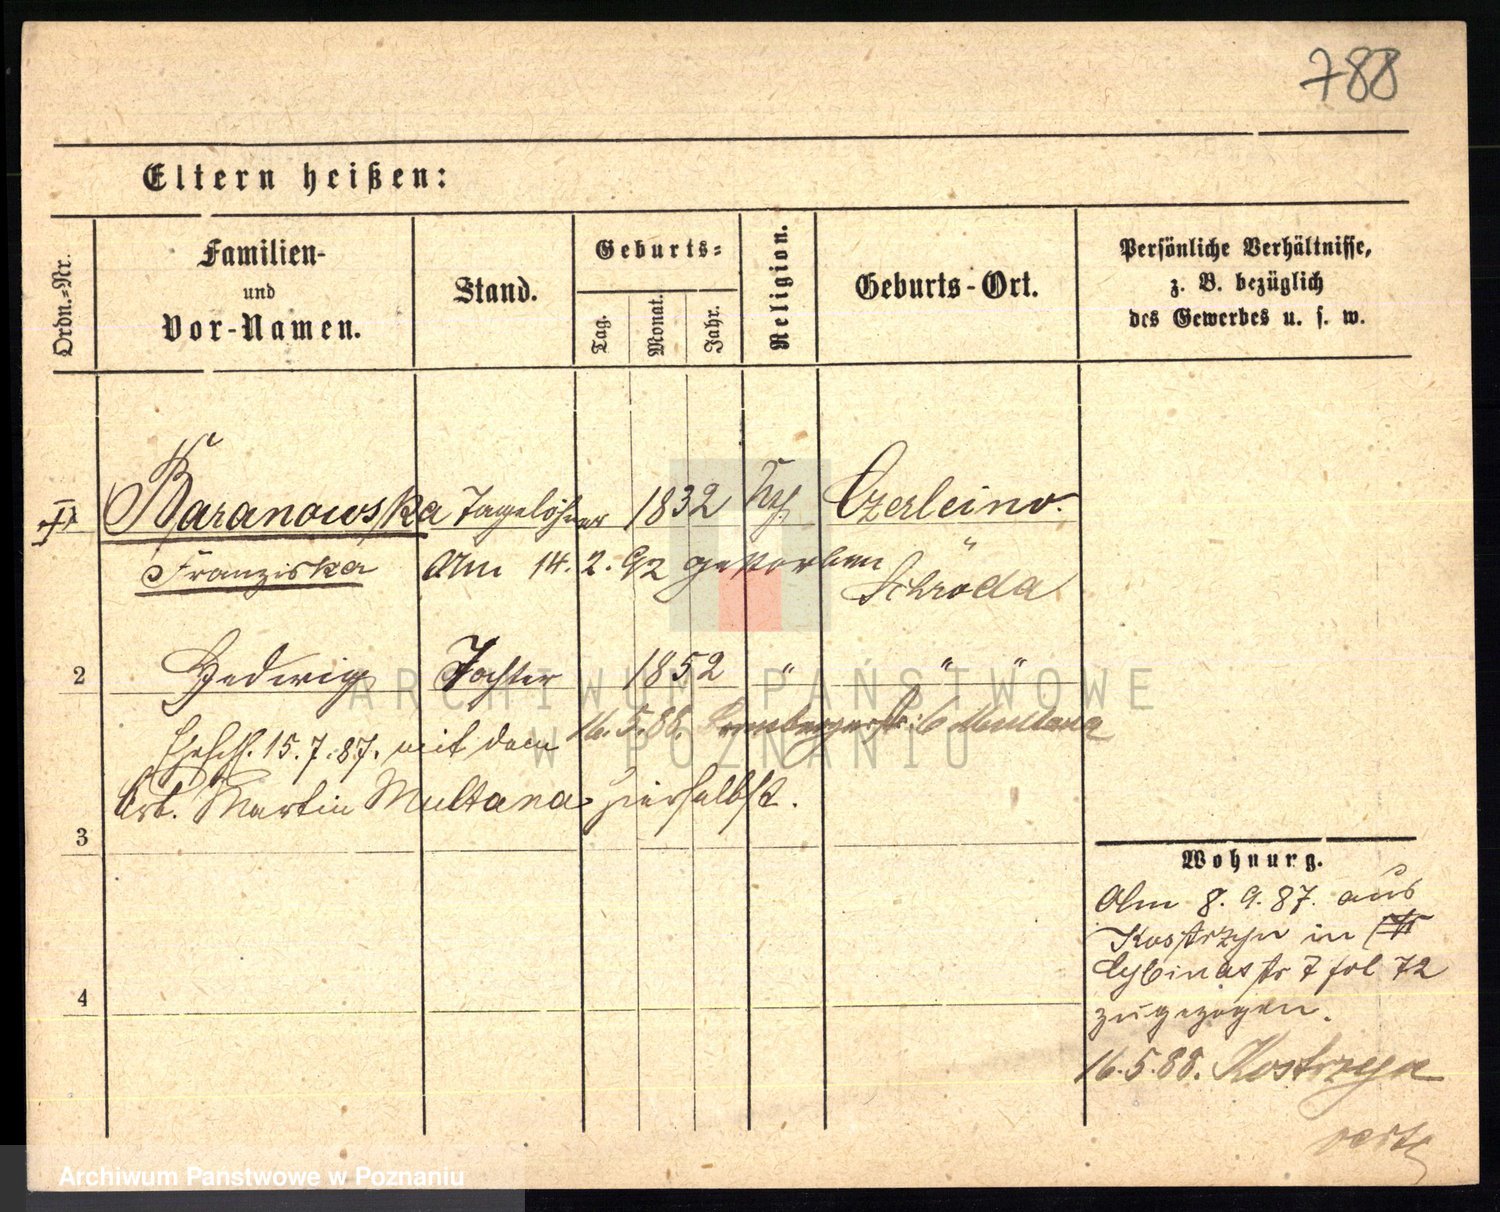 788
Eltern heißen:
Ordn.-Nr.
Familien-
und
Vor-Namen.
Stand.
Geburts-
Tag.
Monat.
Jahr.
Religion.
Geburts-Ort.
Persönliche Verhältnisse,
z. B. bezüglich
des Gewerbes u. s. w.
Baranowska Tagelöhner 1832 kth. Czerleino.
Franziska Am 14. 2. 92 gestorben Schroda
2 Hedwig Tochter 1852 " " "
Ehesch. 15. 7. 87. mit dem 16. 5. 88. 6 Multana
Arb. Martin Multana hierselbst.
3
4
Wohnung.
Am 8. 9. 87. aus
Kostrzyn in
Cybinastr 7 fol 72
zugezogen.
16. 5. 88. Kostrzyn
ARCHIWUM PAŃSTWOWE
W POZNANIU
Archiwum Państwowe w Poznaniu